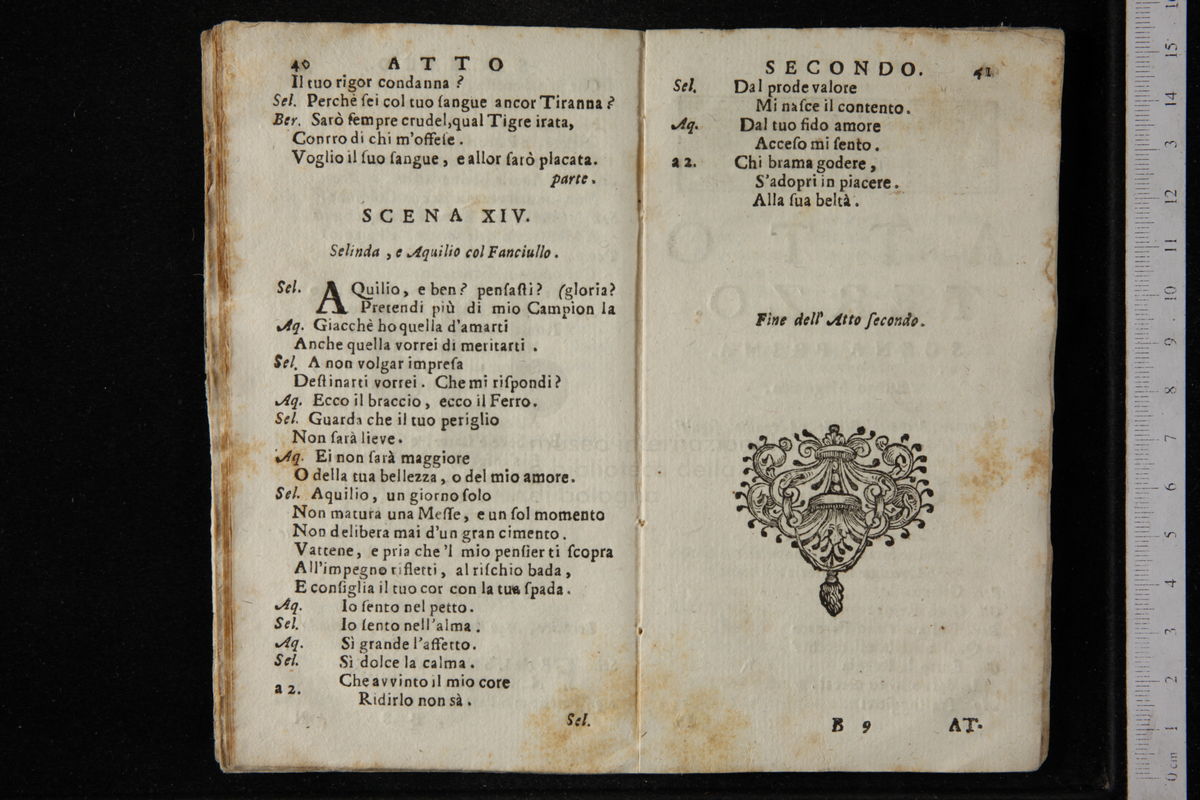 40 ATTO
Il tuo rigor condanna?
Sel. Perchè ſei col tuo ſangue ancor Tiranna?
Ber. Sarò ſempre crudel, qual Tigre irata,
Conrro di chi m'offeſe.
Voglio il ſuo ſangue, e allor ſarò placata.
parte.
SCENA XIV.
Selinda, e Aquilio col Fanciullo.
Sel. AQuilio, e ben? penſaſti? (gloria?
Pretendi più di mio Campion la
Aq. Giacchè ho quella d'amarti
Anche quella vorrei di meritarti.
Sel. A non volgar impreſa
Deſtinarti vorrei. Che mi riſpondi?
Aq. Ecco il braccio, ecco il Ferro.
Sel. Guarda che il tuo periglio
Non ſarà lieve.
Aq. Ei non ſarà maggiore
O della tua bellezza, o del mio amore.
Sel. Aquilio, un giorno ſolo
Non matura una Meſſe, e un ſol momento
Non delibera mai d'un gran cimento.
Vattene, e pria che 'l mio penſier ti ſcopra
All'impegno rifletti, al riſchio bada,
E conſiglia il tuo cor con la tua ſpada.
Aq. Io ſento nel petto.
Sel. Io ſento nell'alma.
Aq. Sì grande l'affetto.
Sel. Sì dolce la calma.
a 2. Che avvinto il mio core
Ridirlo non sà.
Sel.
SECONDO. 41
Sel. Dal prode valore
Mi naſce il contento.
Aq. Dal tuo fido amore
Acceſo mi ſento.
a 2. Chi brama godere,
S'adopri in piacere.
Alla ſua beltà.
Fine dell' Atto ſecondo.
B 9 AT-